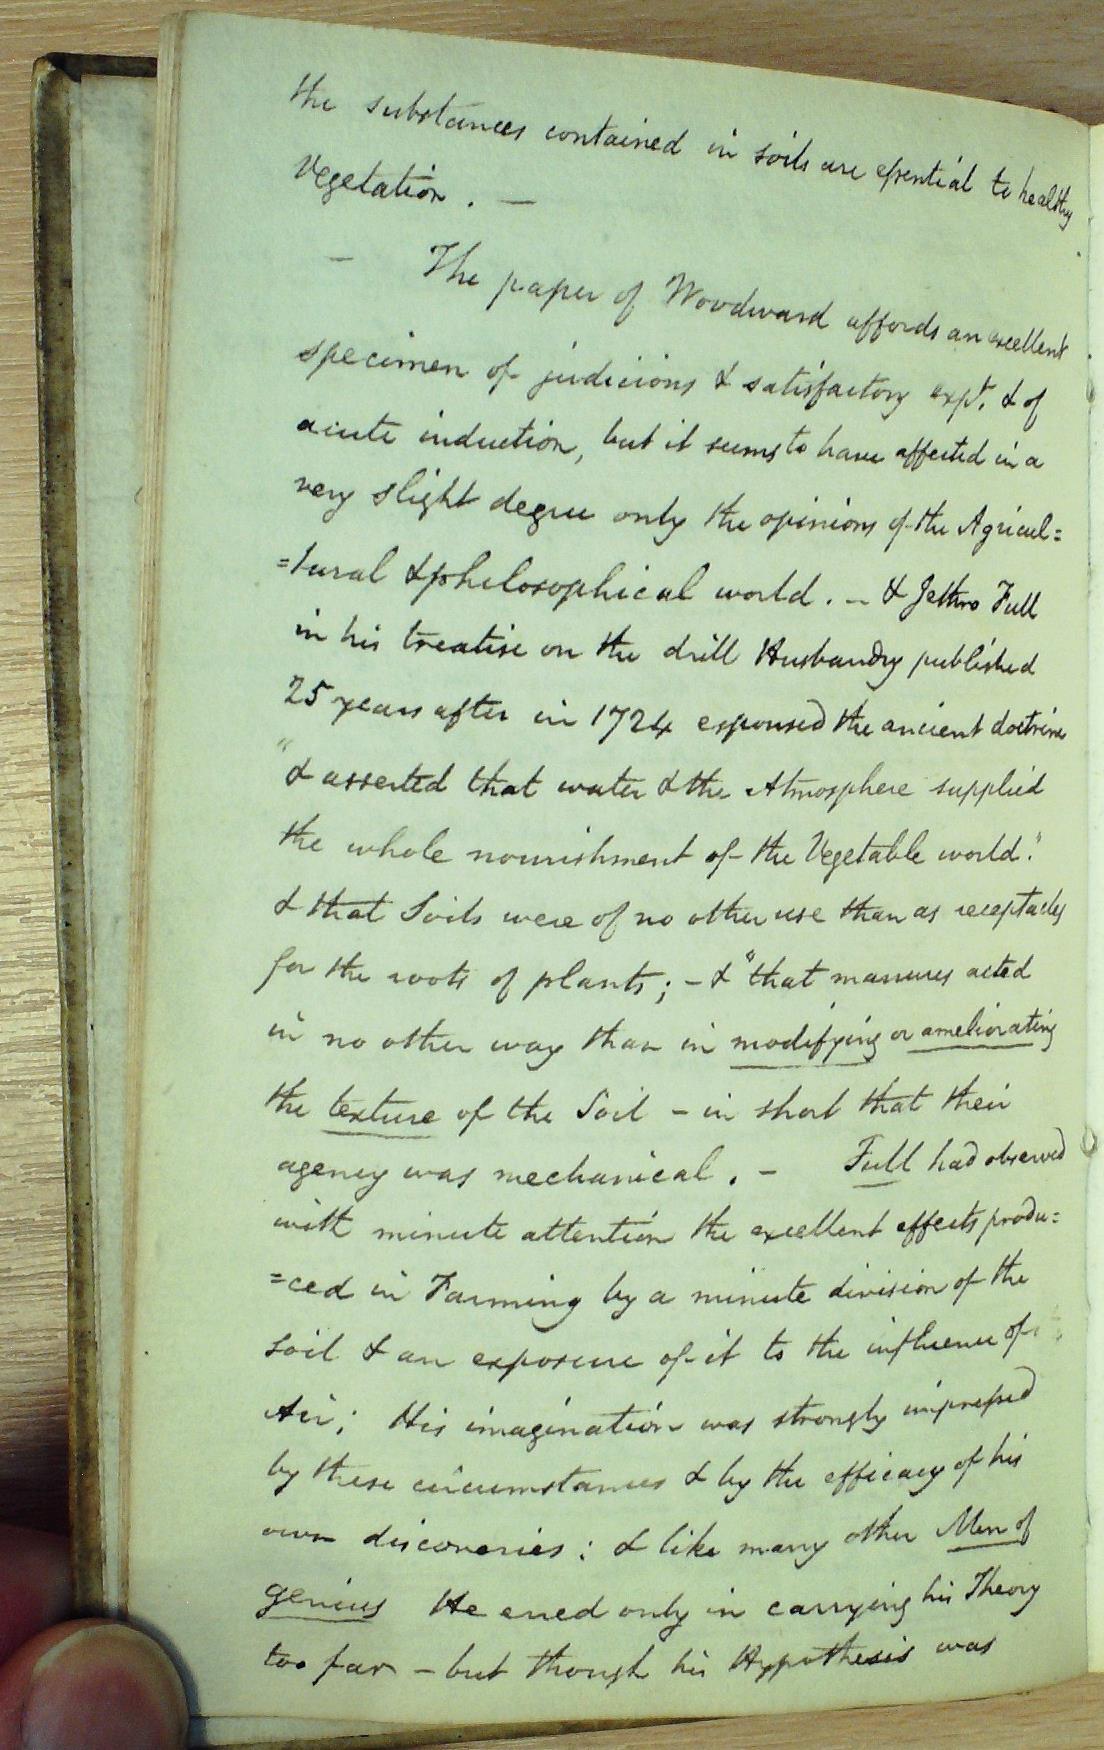 the substances contained in soils are essential to healthy
Vegetation. —
— The paper of Woodward affords an excellent
specimen of judicious & satisfactory expt. & of
acute induction, but it seems to have affected in a
very slight degree only the opinions of the Agricul=
=tural & philosophical world. — & Jethro Tull
in his treatise on the drill Husbandry published
25 years after in 1724 espoused the ancient doctrine
"& asserted that water & the Atmosphere supplied
the whole nourishment of the Vegetable world."
& that Soils were of no other use than as receptacles
for the roots of plants; – & "that manures acted
in no other way than in modifying or ameliorating
the texture of the Soil – in short that their
agency was mechanical. – Tull had observed
with minute attention the excellent effects produ=
=ced in Farming by a minute division of the
soil & an exposure of it to the influence of
Air; His imagination was strongly impressed
by these circumstances & by the efficacy of his
own discoveries: & like many other Men of
genius He erred only in carrying his Theory
too far – but though his Hypothesis was